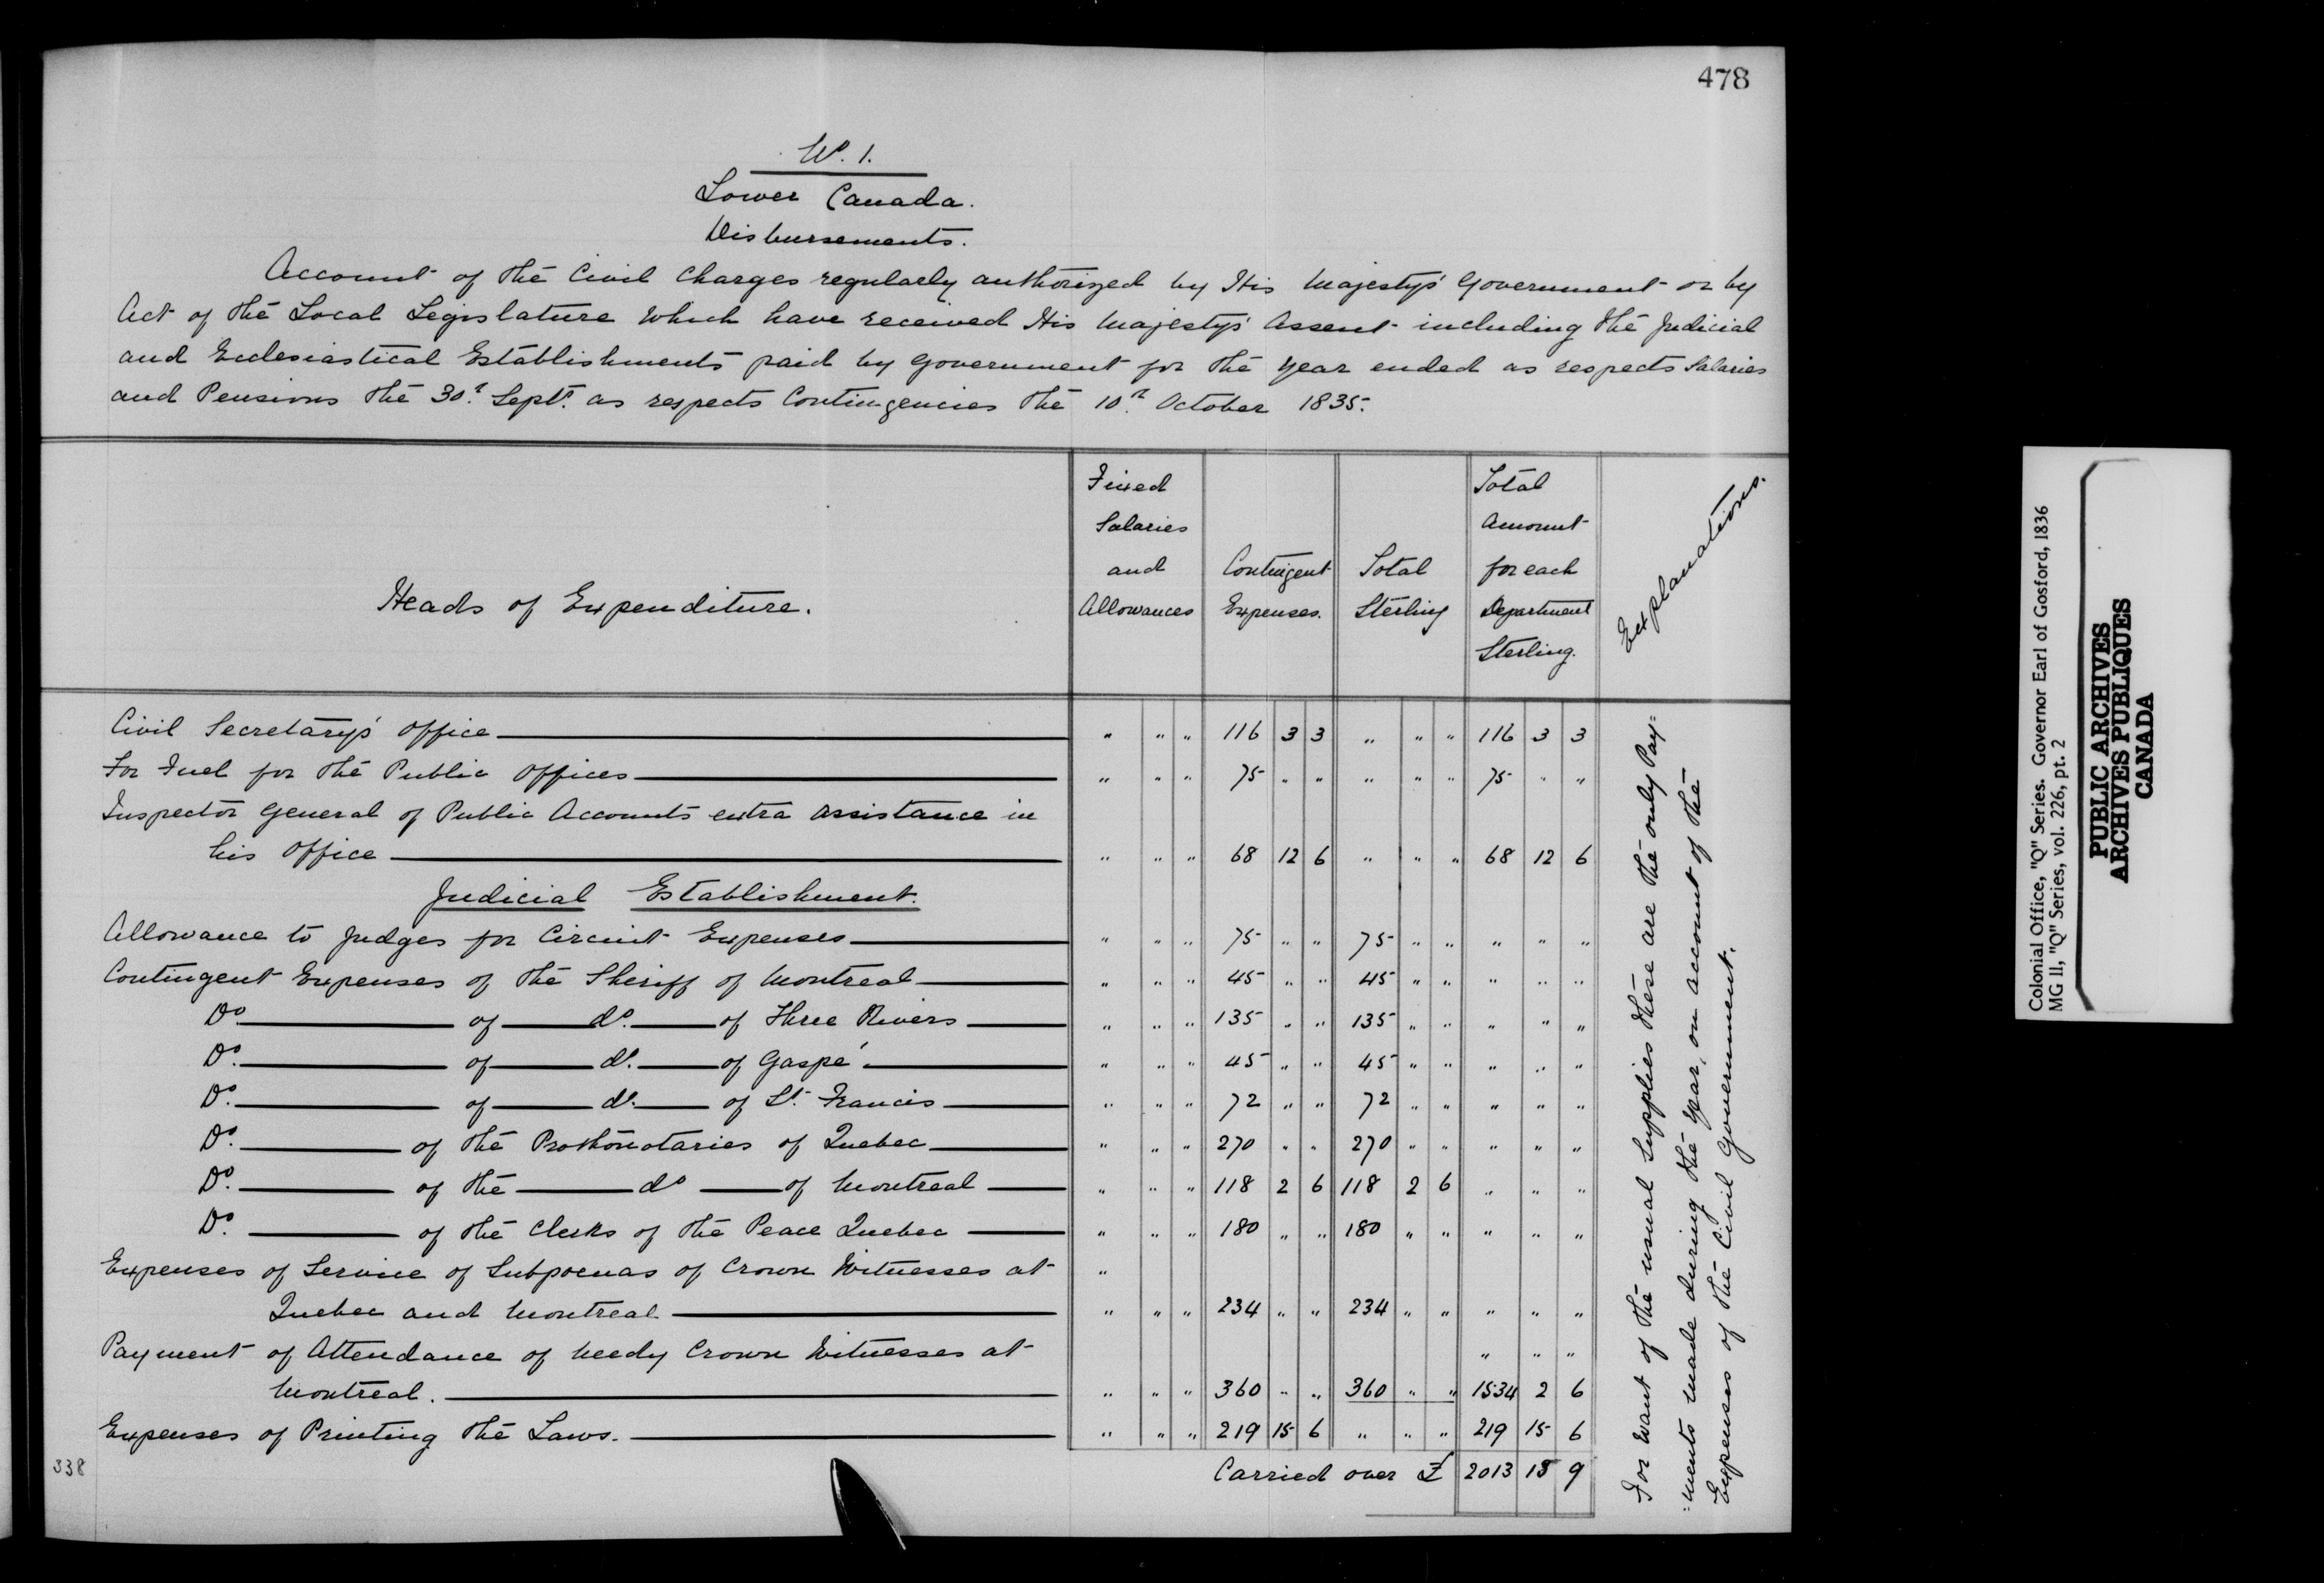 478
No. 1.
Lower Canada.
Disbursements.
Account of the Civil Charges regularly authorized by His Majesty's Government or by
Act of the Local Legislature which have received His Majesty's Assent including the Judicial
and Ecclesiastical Establishments paid by Government for the year ended as respects Salaries
and Pensions the 30th Septr. as respects Contingencies the 10th October 1835.
Heads of Expenditure. Fixed Salaries and Allowances Contingent Expenses. Total Sterling Total Amount for each Department Sterling. Explanations.
Civil Secretary's Office " " " 116 3 3 " " " 116 3 3
For Fuel for the Public Offices " " " 75 " " " " " 75 " "
Inspector General of Public Accounts extra assistance in
his Office " " " 68 12 6 " " " 68 12 6
Judicial Establishment.
Allowance to Judges for Circuit Expenses " " " 75 " " 75 " " " " "
Contingent Expenses of the Sheriff of Montreal " " " 45 " " 45 " " " " "
Do. of do. of Three Rivers " " " 135 " " 135 " " " " "
Do. of do. of Gaspé " " " 45 " " 45 " " " " "
Do. of do. of St. Francis " " " 72 " " 72 " " " " "
Do. of the Prothonotaries of Quebec " " " 270 " " 270 " " " " "
Do. of the do of Montreal " " " 118 2 6 118 2 6 " " "
Do. of the Clerks of the Peace Quebec " " " 180 " " 180 " " " " "
Expenses of Service of Subpoenas of Crown Witnesses at "
Quebec and Montreal " " " 234 " " 234 " " " " "
Payment of Attendance of needy Crown Witnesses at " " "
Montreal. " " " 360 " " 360 " " 1534 2 6
Expenses of Printing the Laws. " " " 219 15 6 " " " 219 15 6
Carried over £ 2013 13 9
338
For want of the usual Supplies these are the only Pay=
=ments made during the year, on account of the
Expenses of the Civil Government.
Colonial Office, "Q" Series. Governor Earl of Gosford, 1836
MG II, "Q" Series, vol. 226, pt. 2
PUBLIC ARCHIVES
ARCHIVES PUBLIQUES
CANADA